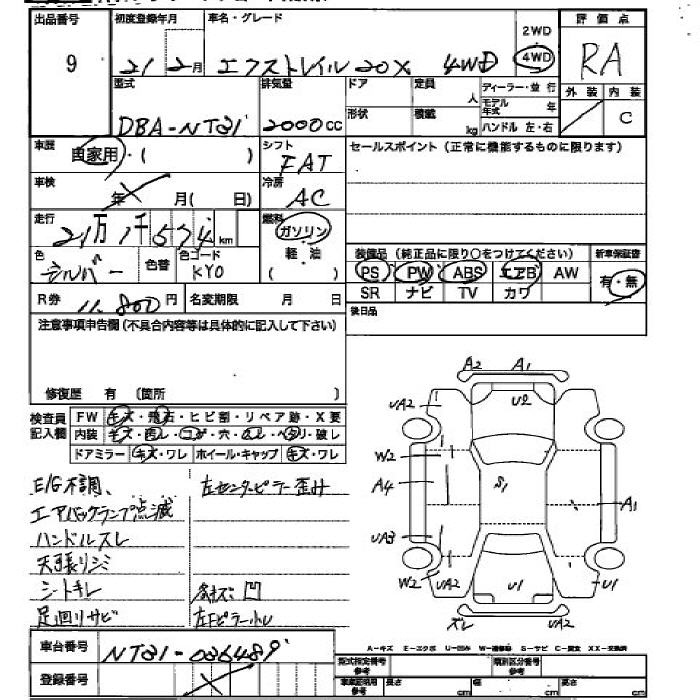 出品番号 初度登録年月 車名・グレード 2WD 評価点
9 21 2月 エクストレイル 20X 4WD 4WD RA
型式 排気量 ドア 定員 人 ディーラー・並行 外装 内装
DBA-NT31 2000cc 形状 積載 kg モデル年式 年 C
ハンドル 左・右
車歴 自家用・( ) シフト FAT セールスポイント(正常に機能するものに限ります)
車検 年 月( 日) 冷房 AC
走行 21万1千574km 燃料 ガソリン 軽油
色 シルバー 色替 色コード KY0 ( )
装備品(純正品に限り○をつけてください) 新車保証書
PS PW ABS エアB AW 有・無
SR ナビ TV カワ
R券 11,800円 名変期限 月 日 後日品
注意事項申告欄(不具合内容等は具体的に記入して下さい)
修復歴 有 〔箇所 〕
検査員記入欄 FW キズ・飛石・ヒビ割・リペア跡・X要
内装 キズ・汚レ・コゲ・穴・スレ・ベタリ・破レ
ドアミラー キズ・ワレ ホイール・キャップ キズ・ワレ
E/G不調、 左センターピラー歪み
エアバックランプ点滅
ハンドルスレ
天張リジミ
シートキレ 各キズ・凹
足回リサビ 左Fピラー小レ
A2 A1
UA2 U2
W2
A4 S1 A1
UA3
W2 UA2 U1 U1
ズレ
A-キズ E-エクボ U-凹み W-補修跡 S-サビ C-腐食 XX-交換済
車台番号 NT31-036489
登録番号
型式指定番号 参考 類別区分番号 参考
車庫証明用 参考 長さ cm 幅 cm 高さ cm